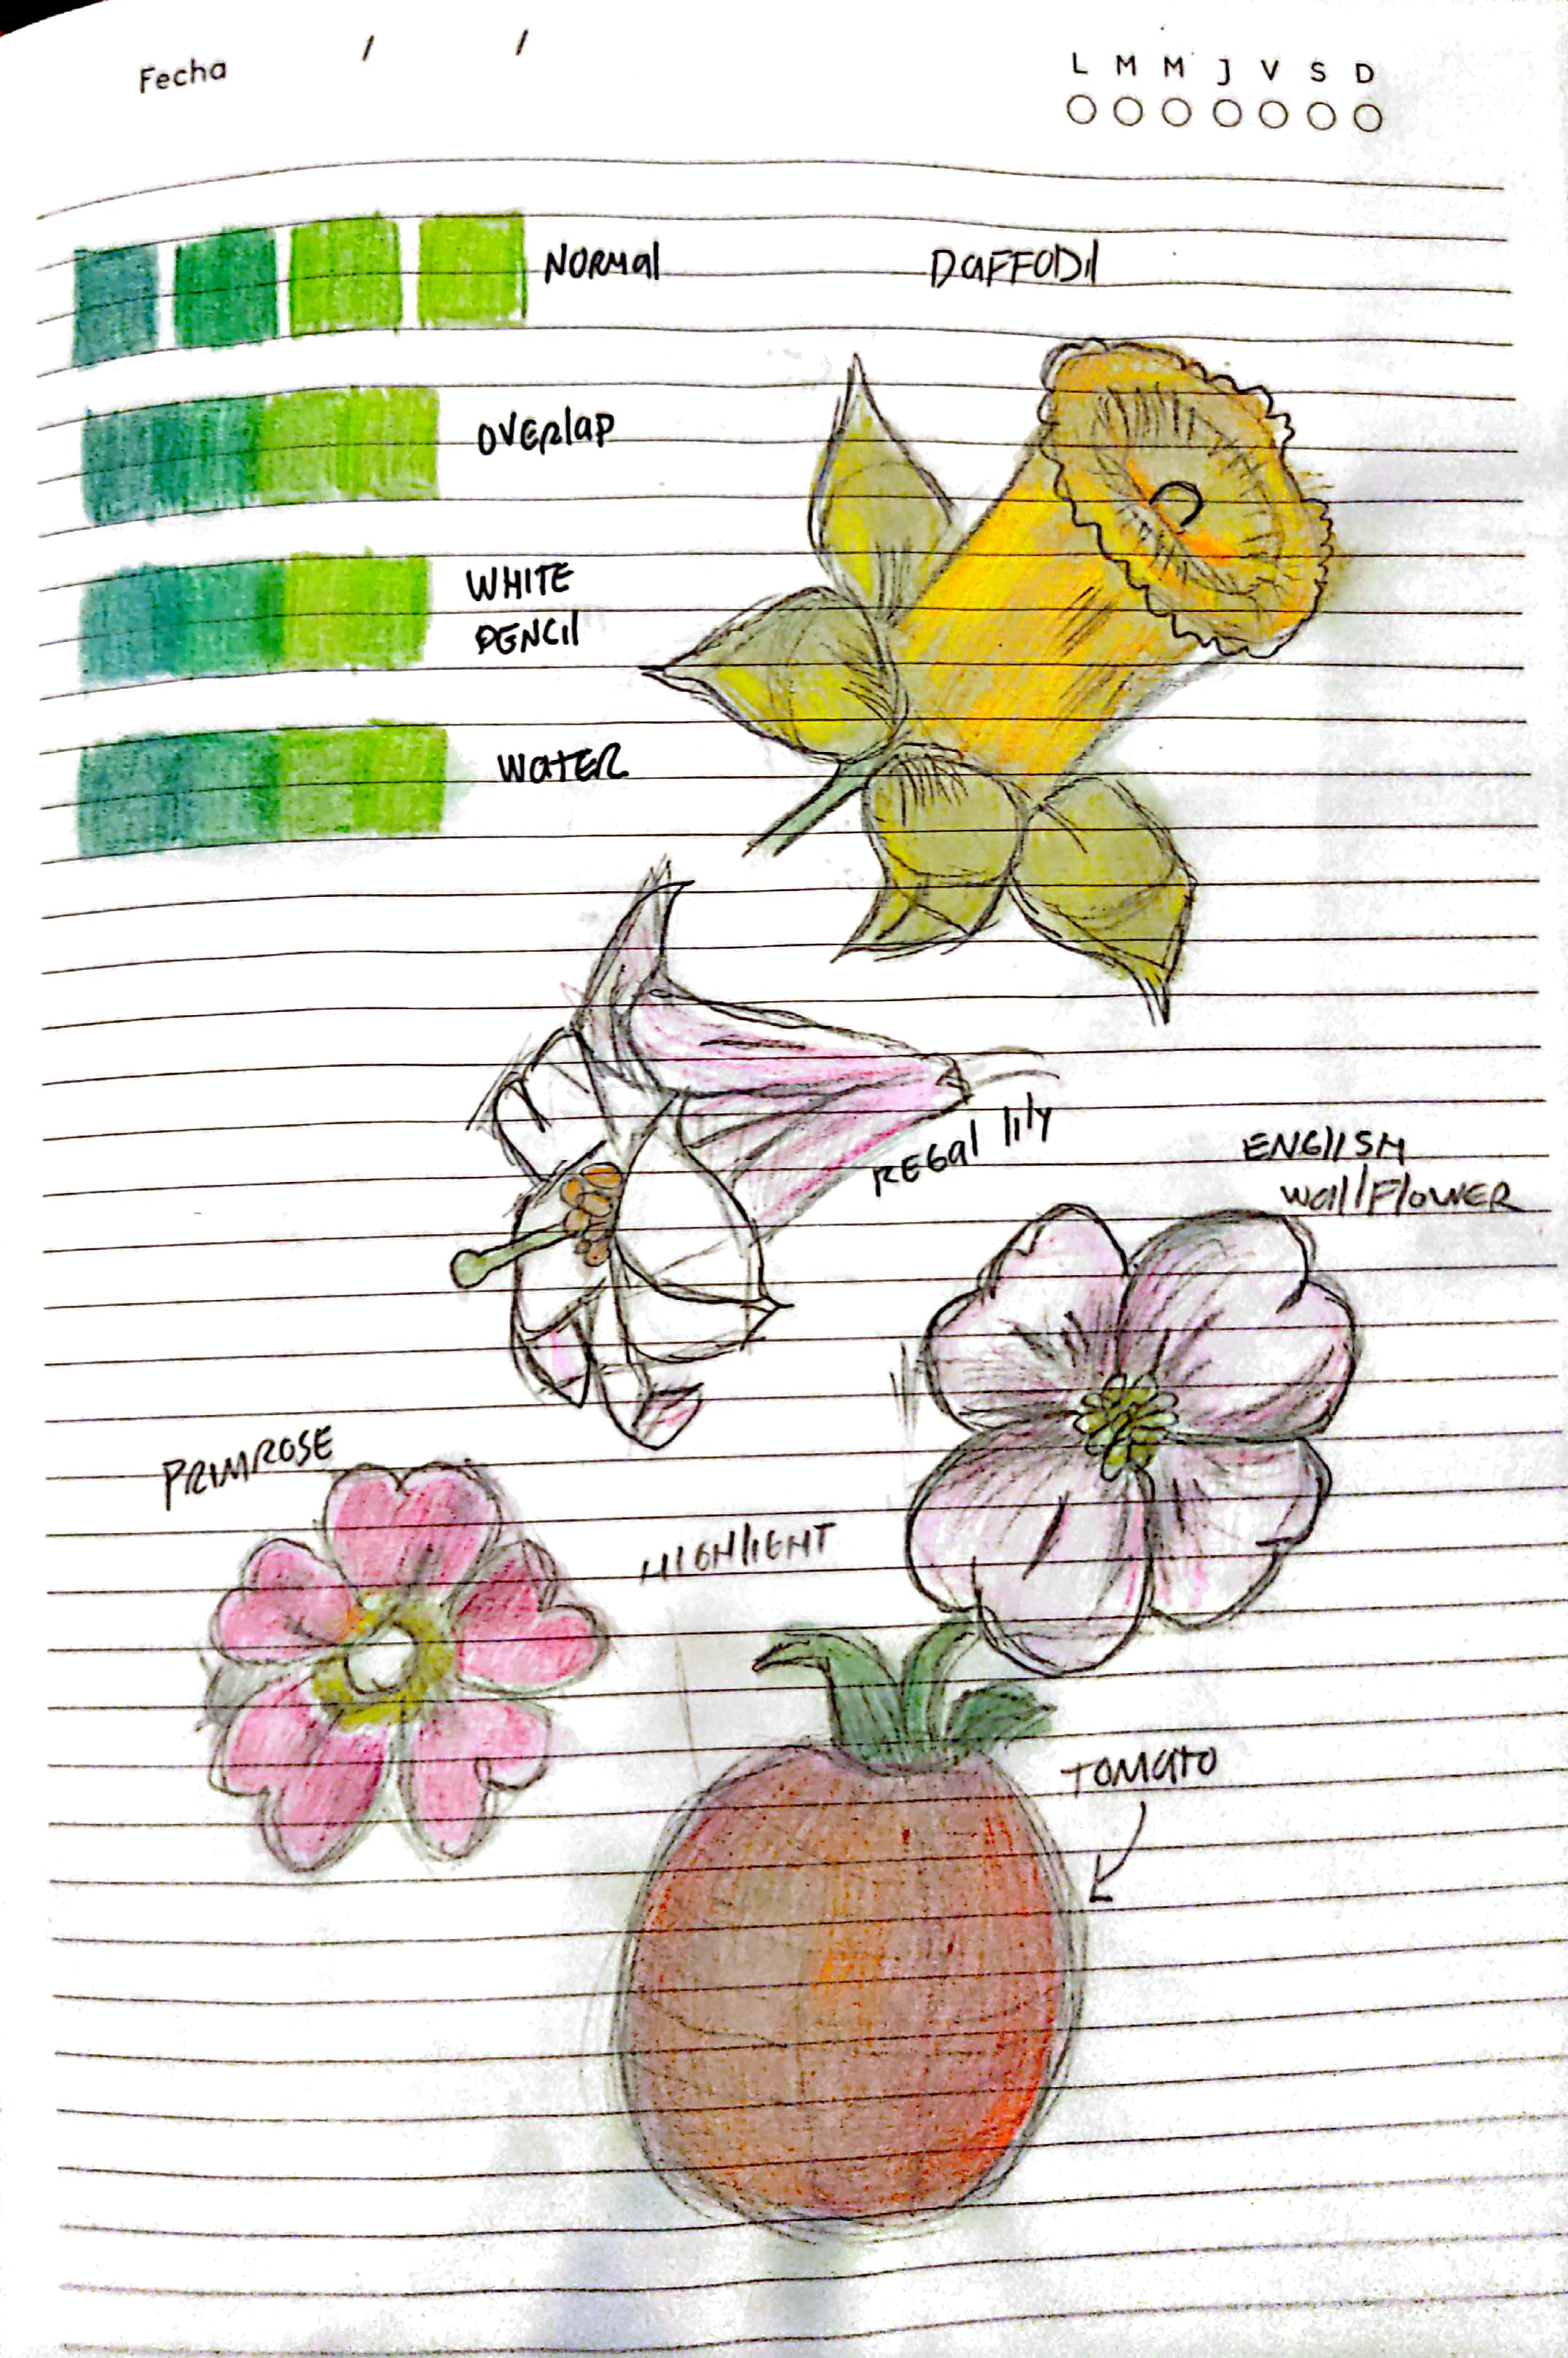 Fecha / /
L M M J V S D
NORMAL
DAFFODIL
OVERLAP
WHITE
PENCIL
WATER
REGAL LILY
ENGLISH
WALLFLOWER
PRIMROSE
HIGHLIGHT
TOMATO